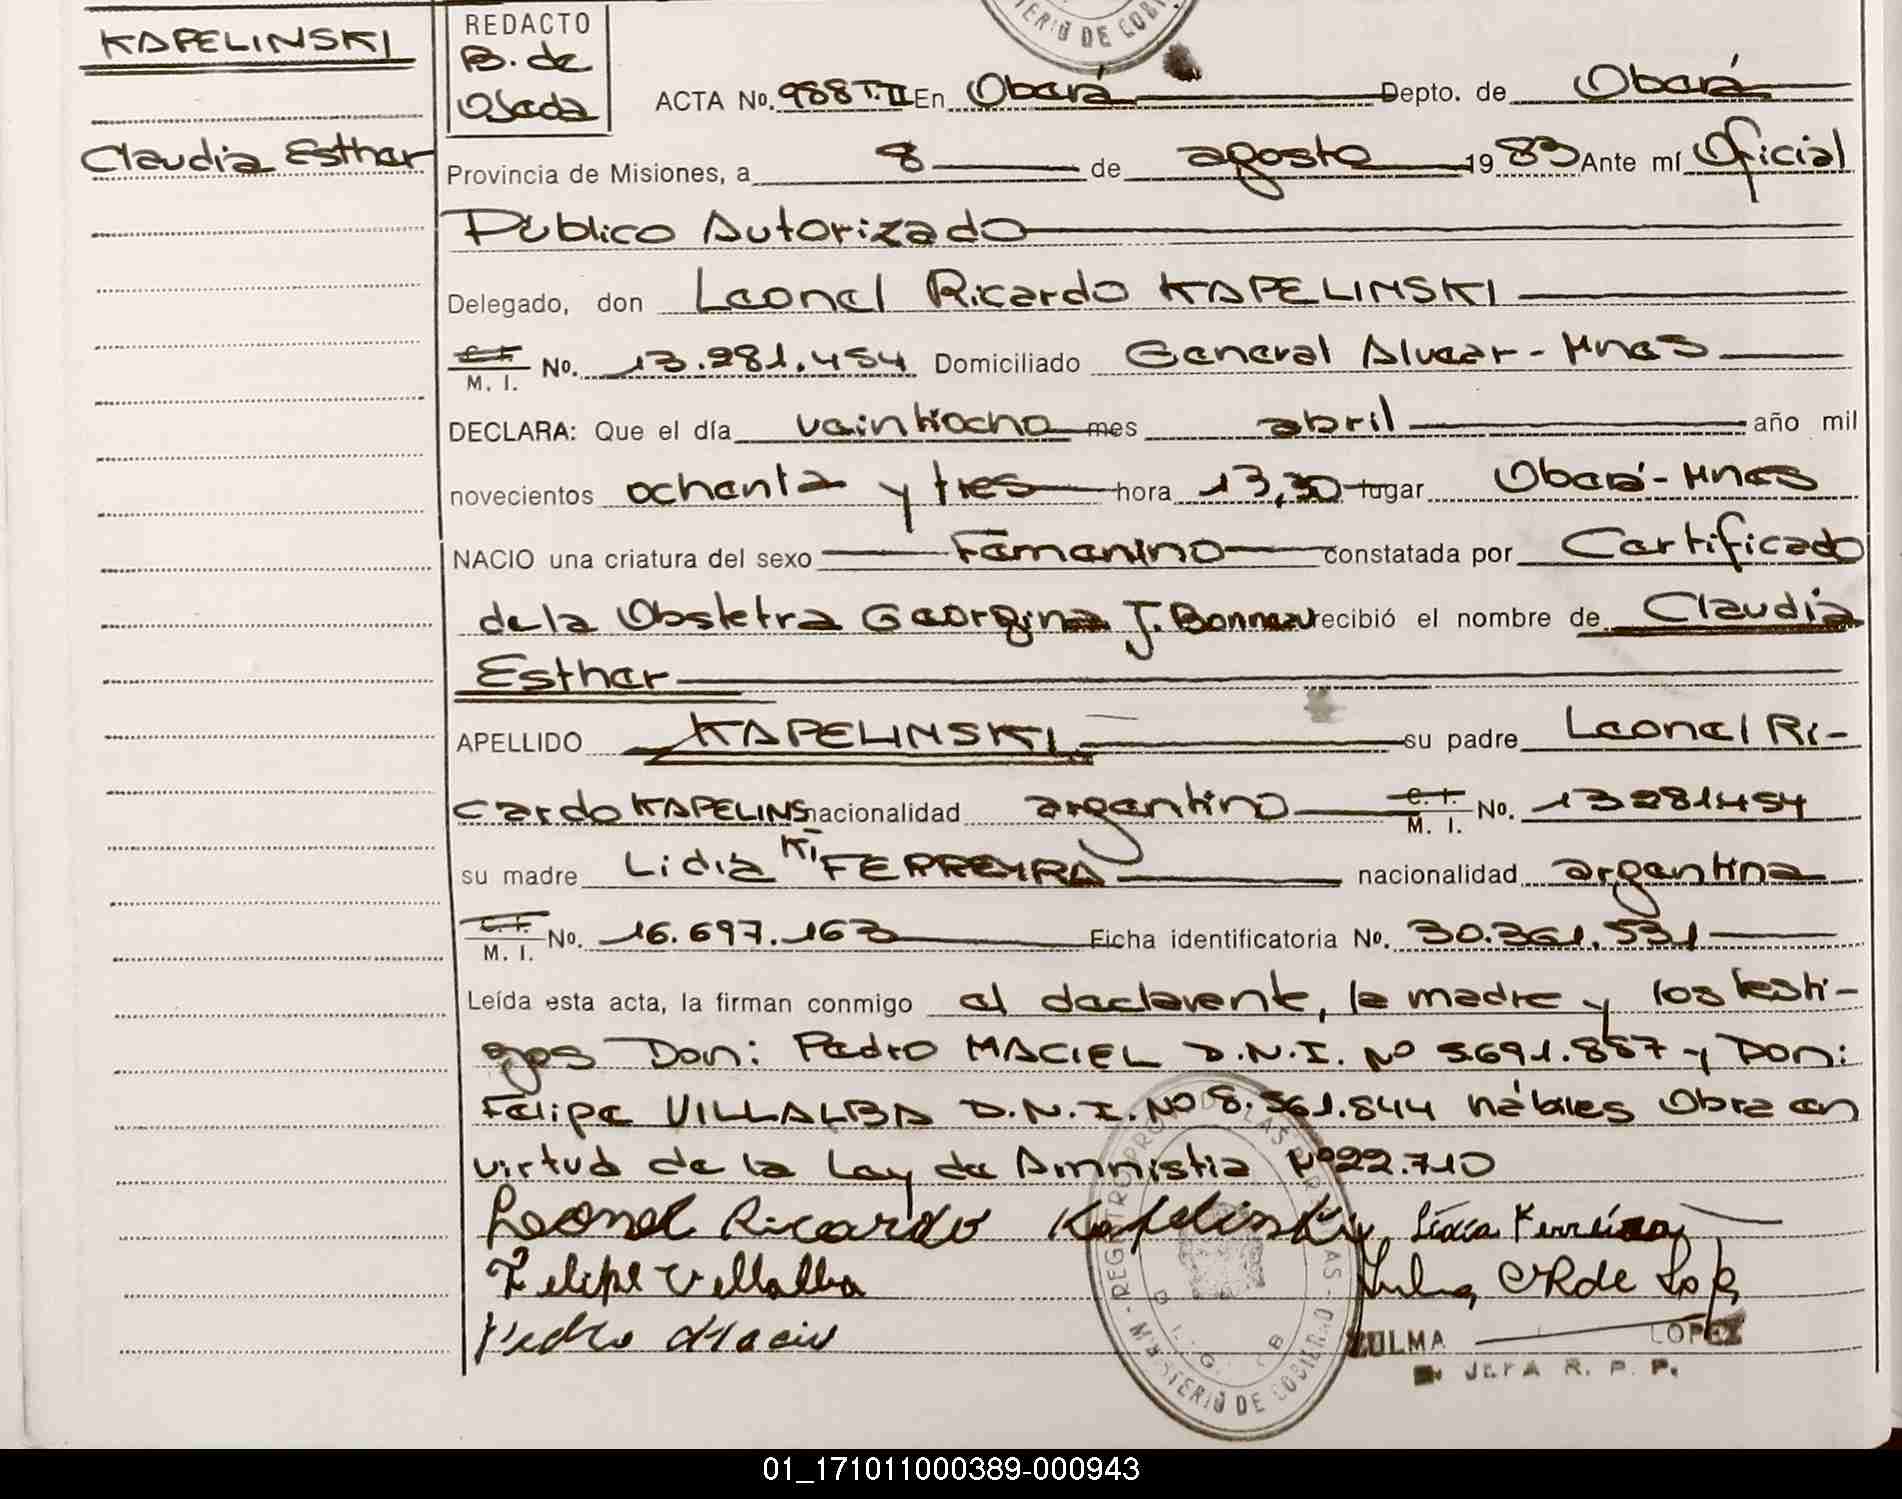 KAPELINSKI
Claudia Esther
REDACTO
B. de
Osada
MINISTERIO DE GOBI
ACTA No. 988 T.II En Oberá Depto. de Oberá
Provincia de Misiones, a 8 de agosto 1983 Ante mí Oficial
Público Autorizado
Delegado, don Leonel Ricardo KAPELINSKI
C.I. M. I. No. 13.281.454 Domiciliado General Alvear - Mnes
DECLARA: Que el día veintiocho mes abril año mil
novecientos ochenta y tres hora 13,30 lugar Oberá - Mnes
NACIO una criatura del sexo Femenino constatada por Certificado
de la Obstetra Georgina J. Bonneau recibió el nombre de Claudia
Esther
APELLIDO KAPELINSKI su padre Leonel Ri-
cardo KAPELINSKI nacionalidad argentino C.I. M. I. No. 13281454
su madre Lidia FERREYRA nacionalidad argentina
C.I. M. I. No. 16.697.163 Ficha identificatoria No. 30.361.531
Leída esta acta, la firman conmigo el declarente, la madre y los testi-
gos Don: Pedro MACIEL D.N.I. Nº 5.691.857 y Don:
Felipe VILLALBA D.N.I. Nº 8.361.844 hábiles Obra en
virtud de la Ley de Amnistia Nº 22.710
Leonel Ricardo Kapelinski Lidia Ferreira
Felipe Villalba
Pedro Maciel
ZULMA LOPEZ
JEFA R. P. P.
REGISTRO PROV. DE LAS PERSONAS - MINISTERIO DE GOBIERNO
01_171011000389-000943